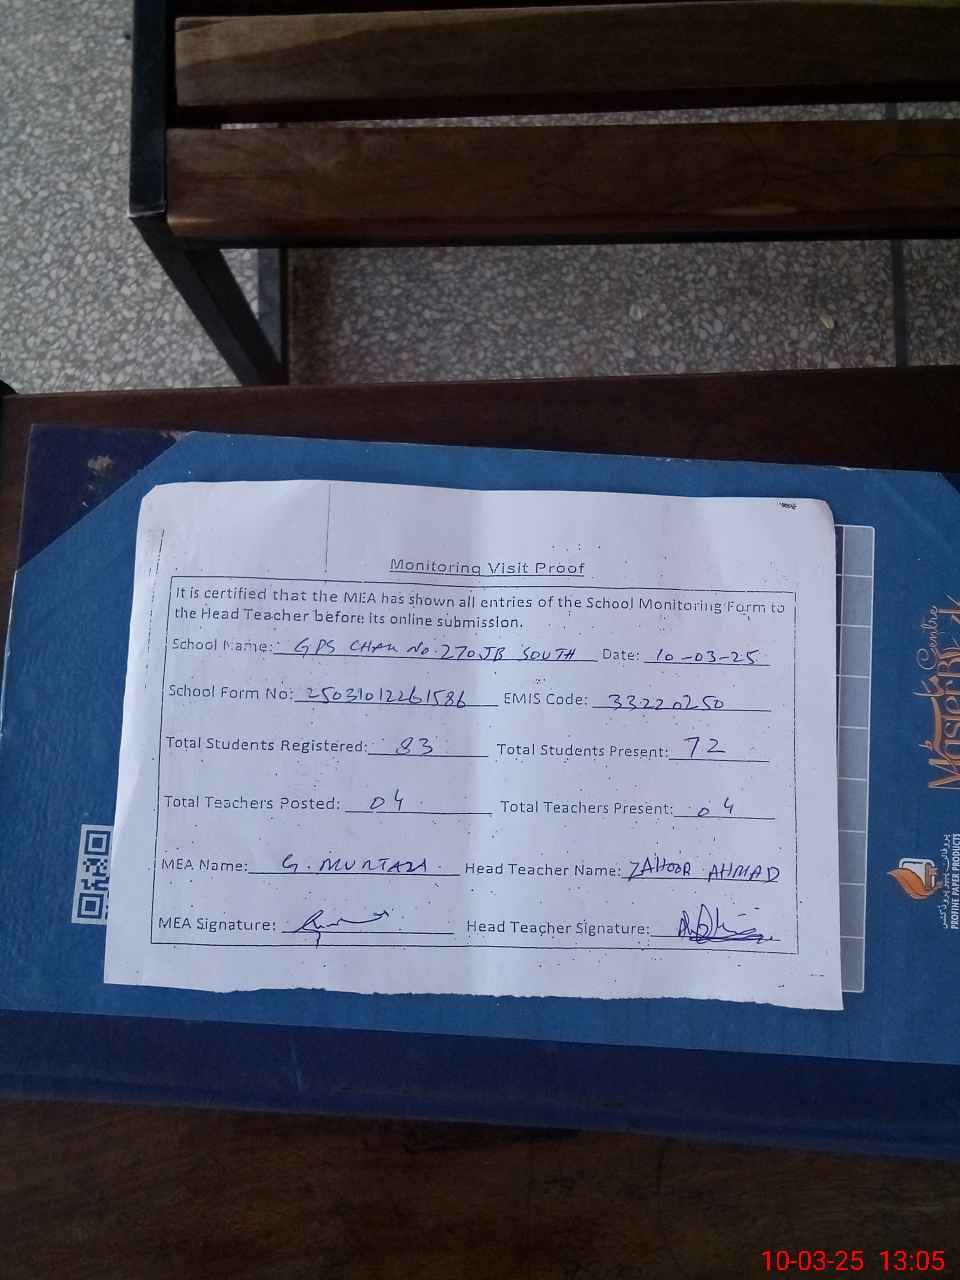 Monitoring Visit Proof
It is certified that the MEA has shown all entries of the School Monitoring Form to
the Head Teacher before its online submission.
School Name: GPS CHAK No. 270 JB SOUTH Date: 10-03-25
School Form No: 25031012261586 EMIS Code: 33220250
Total Students Registered: 83 Total Students Present: 72
Total Teachers Posted: 04 Total Teachers Present: 04
MEA Name: G. MURTAZA Head Teacher Name: ZAHOOR AHMAD
MEA Signature: Head Teacher Signature:
Centre
PROTHE PAPER PRODUCTS
10-03-25 13:05